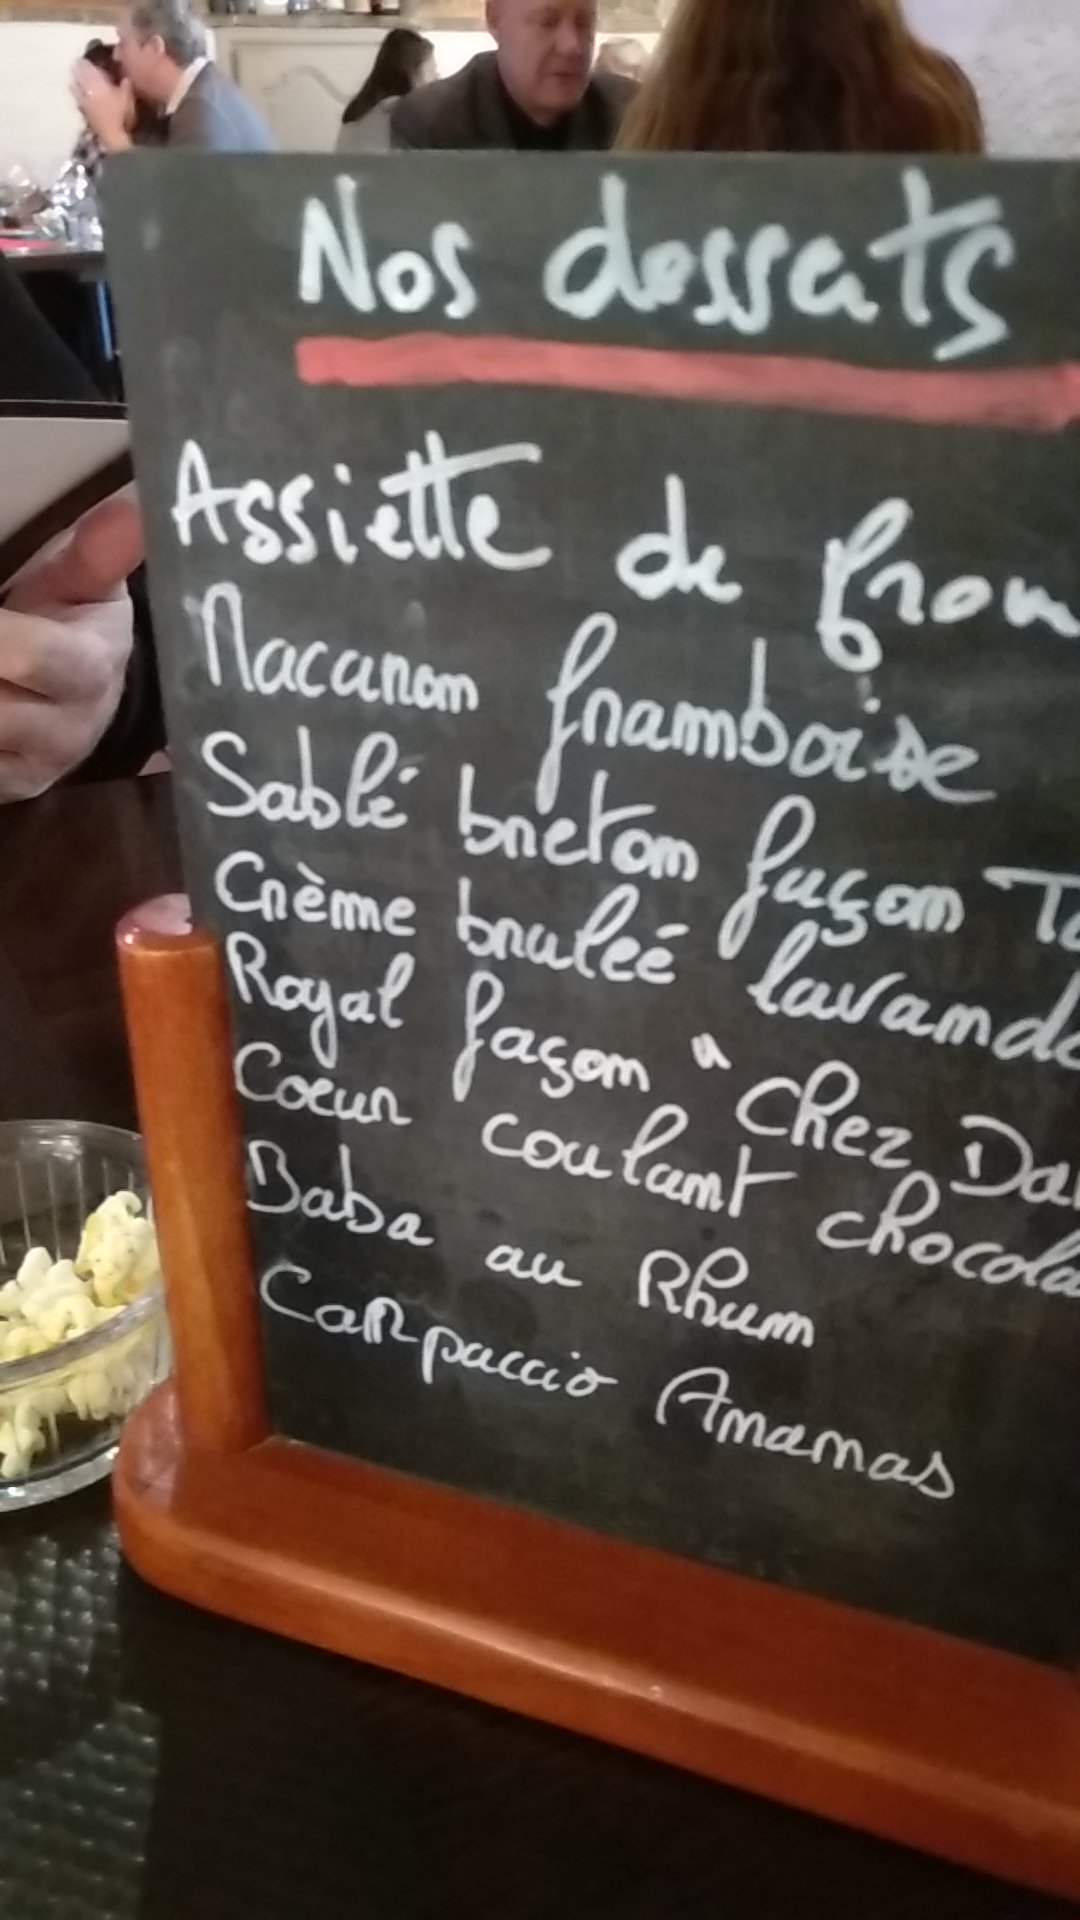 Nos desserts
Assiette de from
Macaron framboise
Sablé breton façon Ta
Crème bruleé lavande
Royal façon "Chez Dan
Coeur coulant chocola
Baba au Rhum
Carpaccio Ananas